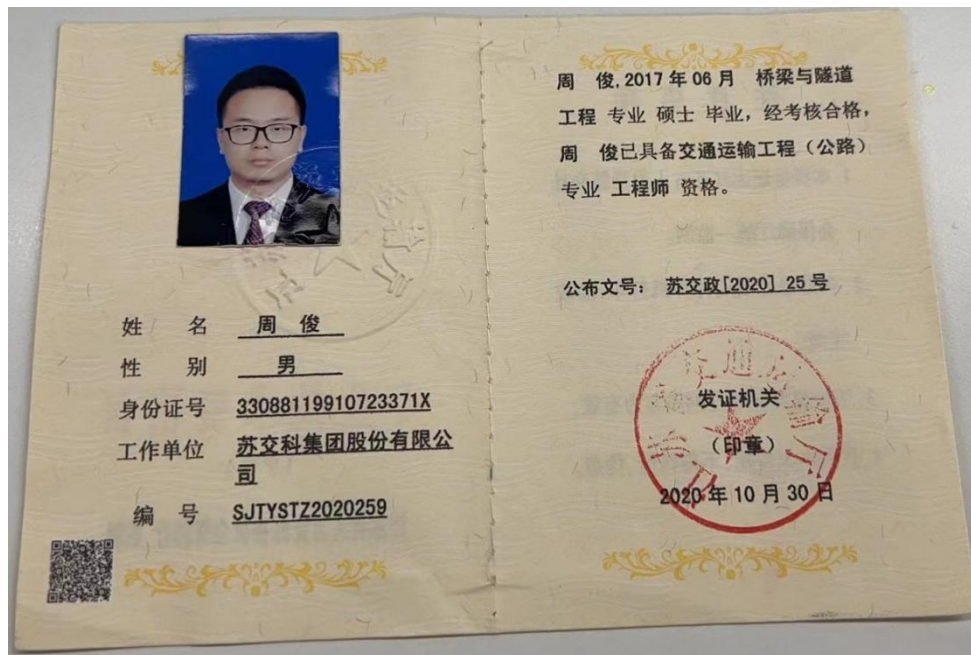 姓 名 周 俊
性 别 男
身份证号 33088119910723371X
工作单位 苏交科集团股份有限公
司
编 号 SJTYSTZ2020259
周 俊,2017年06月 桥梁与隧道
工程 专业 硕士 毕业，经考核合格，
周 俊已具备交通运输工程（公路）
专业 工程师 资格。
公布文号： 苏交政[2020] 25号
发证机关
（印章）
2020年10月30日